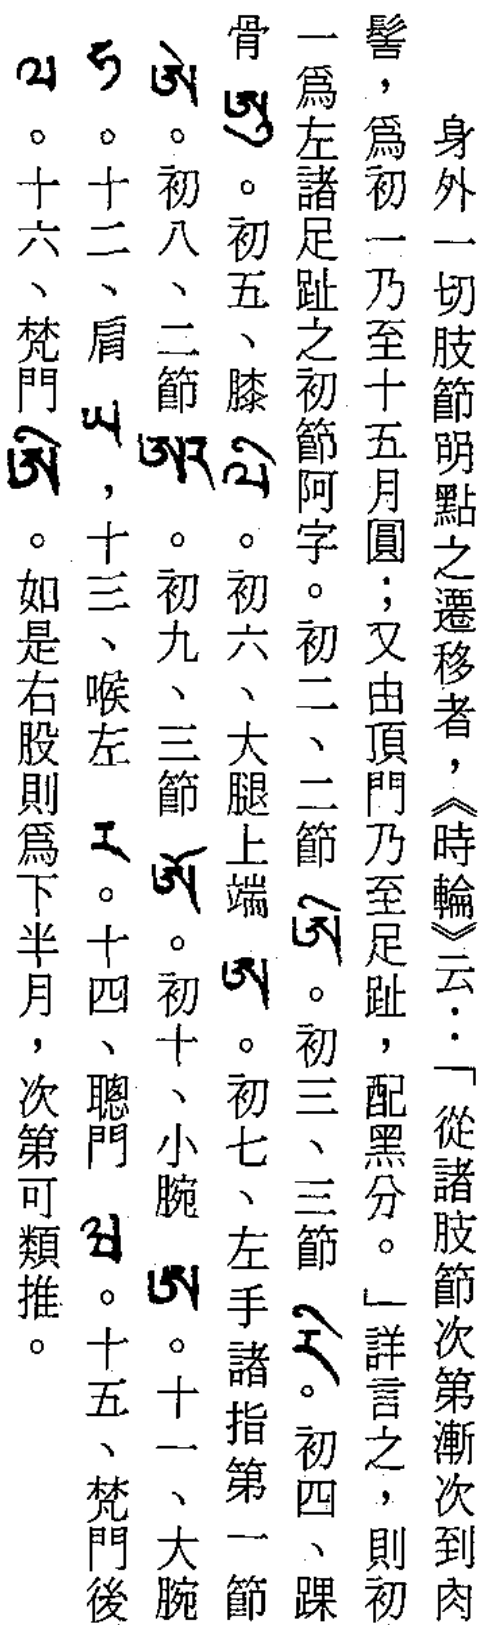 身外一切肢節明點之遷移者，《時輪》云：「從諸肢節次第漸次到肉
髻，爲初一乃至十五月圓；又由頂門乃至足趾，配黑分。」詳言之，則初
一爲左諸足趾之初節阿字。初二、二節 ཨི 。初三、三節 。初四、踝
骨 ཨུ 。初五、膝 。初六、大腿上端 ཨ 。初七、左手諸指第一節
ཨེ 。初八、二節 ཨར 。初九、三節 ཨོ 。初十、小腕 。十一、大腕
ཧ 。十二、肩 ཡ ，十三、喉左 ར 。十四、聰門 ཝ 。十五、梵門後
ལ 。十六、梵門 ཨི 。如是右股則爲下半月，次第可類推。